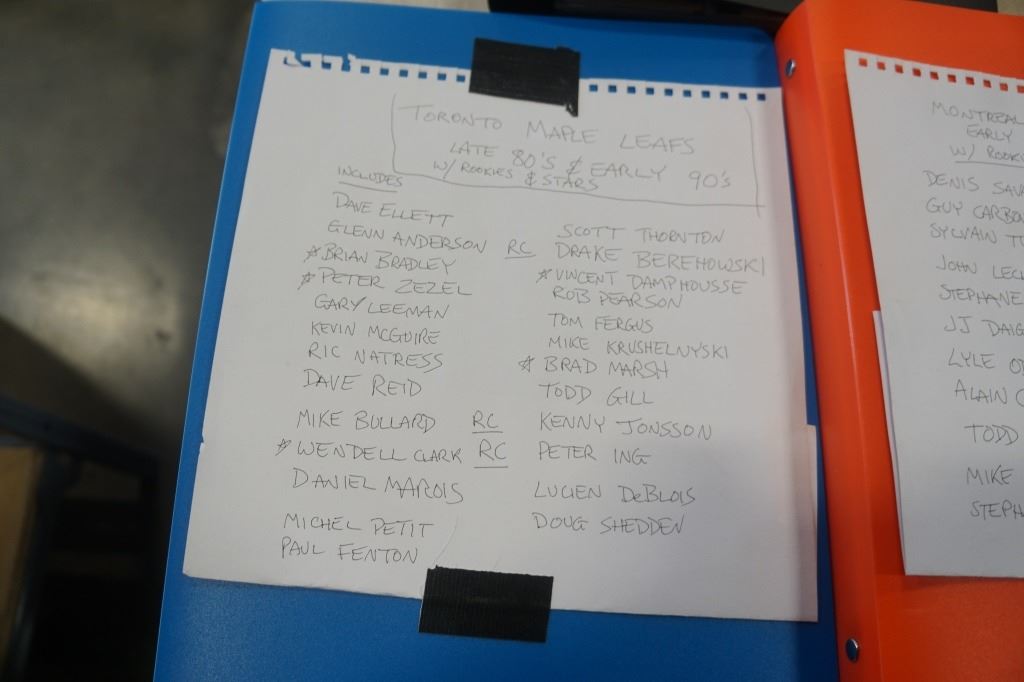 TORONTO MAPLE LEAFS
LATE 80'S & EARLY 90'S
W/ ROOKIES & STARS
INCLUDES
DAVE ELLETT
GLENN ANDERSON
☆ BRIAN BRADLEY
☆ PETER ZEZEL
GARY LEEMAN
KEVIN MCGUIRE
RIC NATRESS
DAVE REID
MIKE BULLARD
☆ WENDELL CLARK
DANIEL MAROIS
MICHEL PETIT
PAUL FENTON
SCOTT THORNTON
RC DRAKE BEREHOWSKI
☆ VINCENT DAMPHOUSSE
ROB PEARSON
TOM FERGUS
MIKE KRUSHELNYSKI
☆ BRAD MARSH
TODD GILL
RC KENNY JONSSON
RC PETER ING
LUCIEN DeBLOIS
DOUG SHEDDEN
MONTREAL
EARLY
W/ ROOKI
DENIS SAV
GUY CARBO
SYLVAIN TU
JOHN LECL
STEPHANE
JJ DAIG
LYLE OD
ALAIN C
TODD
MIKE
STEPH